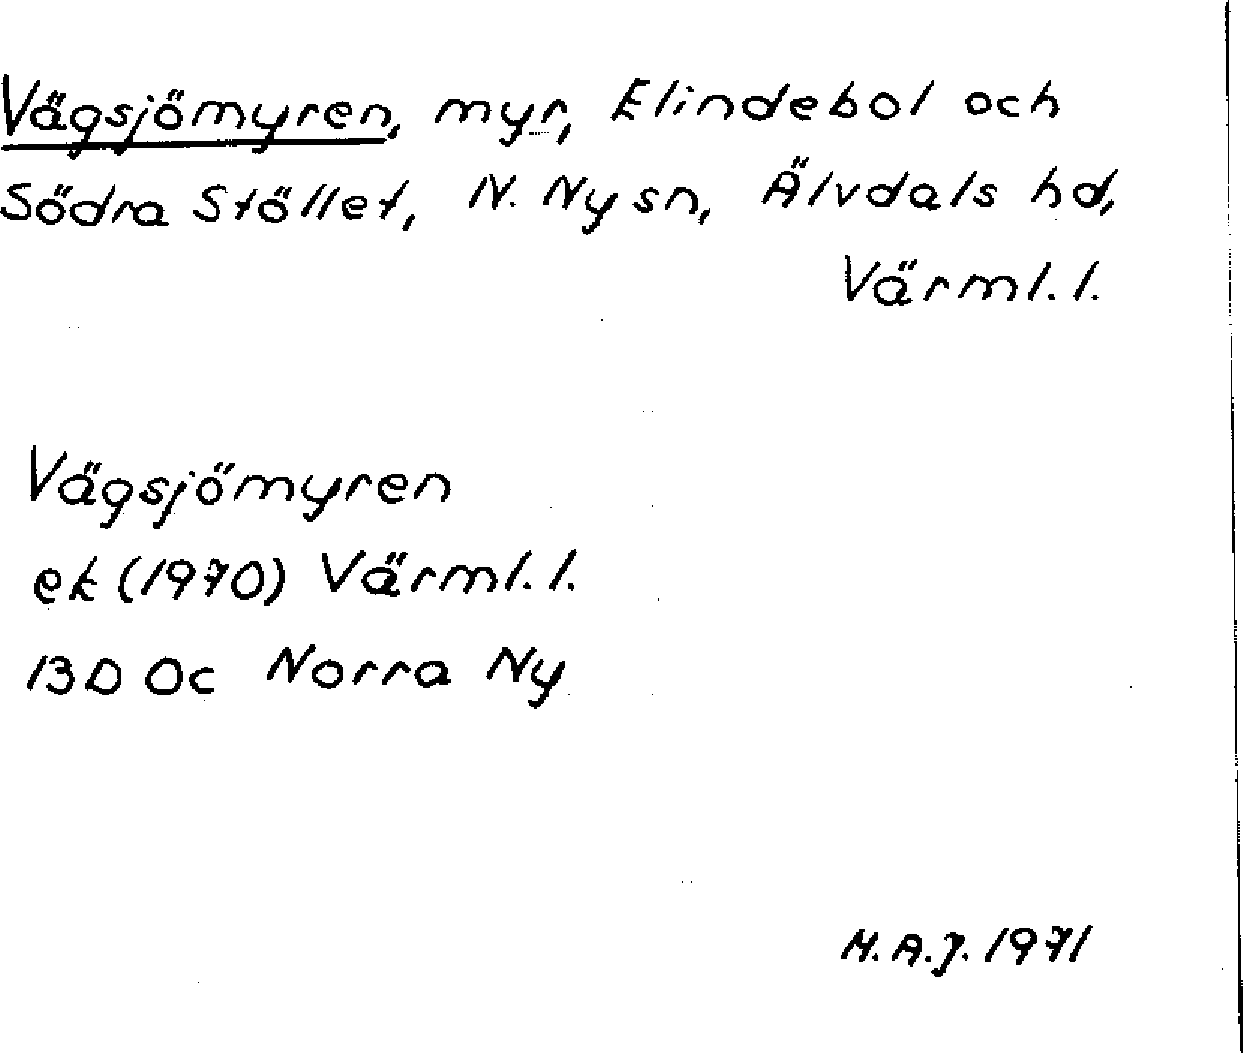 Vägsjömyren, myr, Elindebol och
Södra Stöllet, N. Ny sn, Älvdals hd,
Värml. l.
Vägsjömyren
ek (1970) Värml. l.
13D 0c Norra Ny
H.A.J. 1971